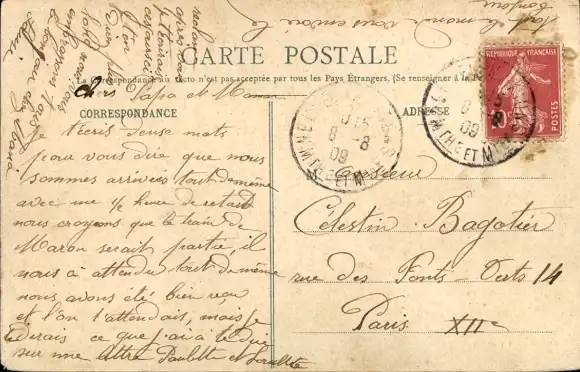 tout le monde vous envoie le
bonjour
CARTE POSTALE
La Correspondance au recto n'est pas acceptée par tous les Pays Étrangers. (Se renseigner à la
CORRESPONDANCE
ADRESSE
RÉPUBLIQUE FRANÇAISE
POSTES
8 -8
09
8
09
Chers Papa et Maman
je t'écris deux mots
pour vous dire que nous
sommes arrivés tout de même
avec une ½ heure de retard
nous croyons que le train de
Maron serait partie, il
nous a attendu tout de même
nous avons été bien reçu
et l'on t'attendais, mais je
dirais ce que j'ai à te dire
sur une lettre Paulette et
Monsieur
Célestin Bagotier
rue des Ponts-Verts 14
Paris XIIe